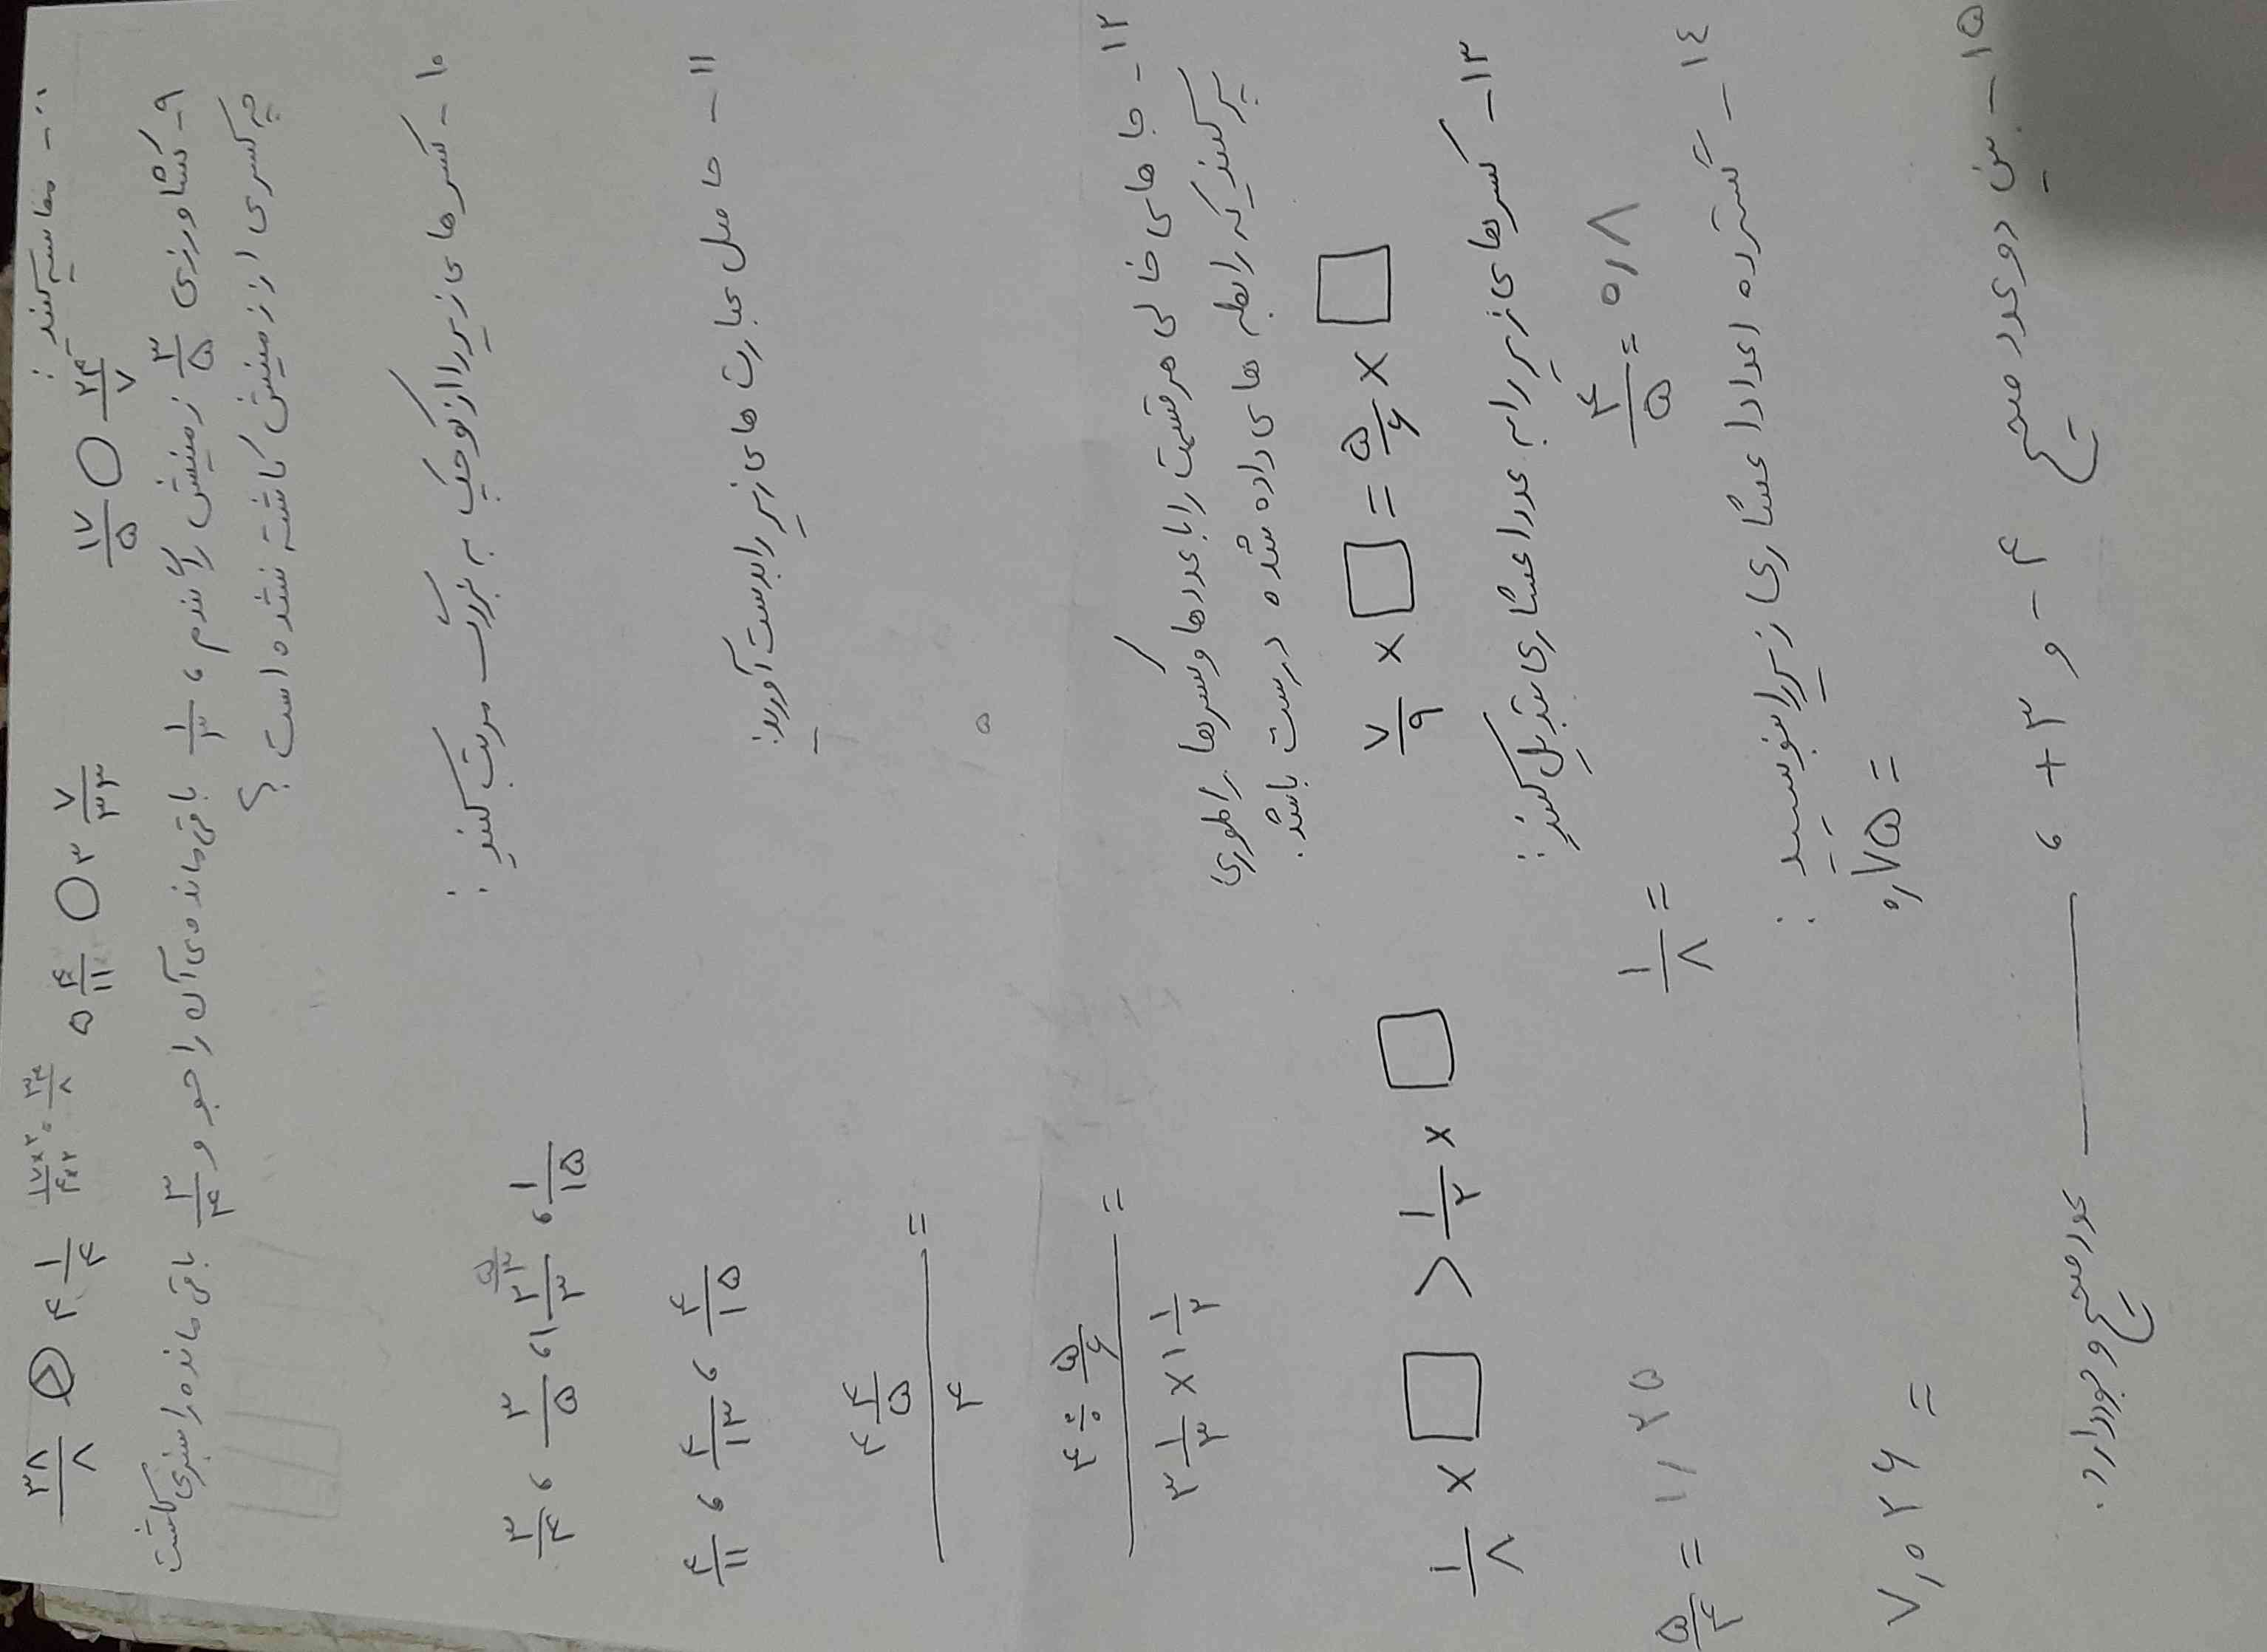 مقایسه کنید:
۳۸/۸ > ۴ ۱/۴ ۱۷×۲/۴×۲ = ۳۴/۸ ۵ ۴/۱۱ ○ ۳ ۷/۳۳ ۱۷/۵ ○ ۲۴/۷
۹- کشاورزی ۳/۵ زمینش را گندم، ۱/۳ باقی مانده ی آن را جو و ۳/۴ باقی مانده را سبزی کاشت
چه کسری از زمینش کاشته نشده است؟
۱۰- کسرهای زیر را از کوچک به بزرگ مرتب کنید:
۳/۴ ، ۳/۵ ، ۱ ۲/۳ ، ۱/۱۵
۴/۱۱ ، ۴/۱۳ ، ۴/۱۵
۱۱- حاصل عبارت های زیر را بدست آورید:
۴ ۴/۵
۴ =
۴ ÷ ۵/۶
۳ ۱/۳ × ۱ ۱/۲ =
۱۲- جاهای خالی هر قسمت را با عددها و کسرها را طوری
پر کنید که رابطه های داده شده درست باشد.
۱/۸ × □ > ۱/۲ × □ ۷/۹ × □ = ۵/۶ × □
۱۳- کسرهای زیر را به عدد اعشاری تبدیل کنید:
۵/۴ = ۱٫۲۵ ۱/۸ = ۴/۵ = ۰٫۸
۱۴- گسترده اعداد اعشاری زیر را بنویسید:
۷٫۰۲۶ = ۰٫۷۵ =
۱۵- بین دو عدد صحیح ۴- و ۳+ ، ______ عدد صحیح وجود دارد.